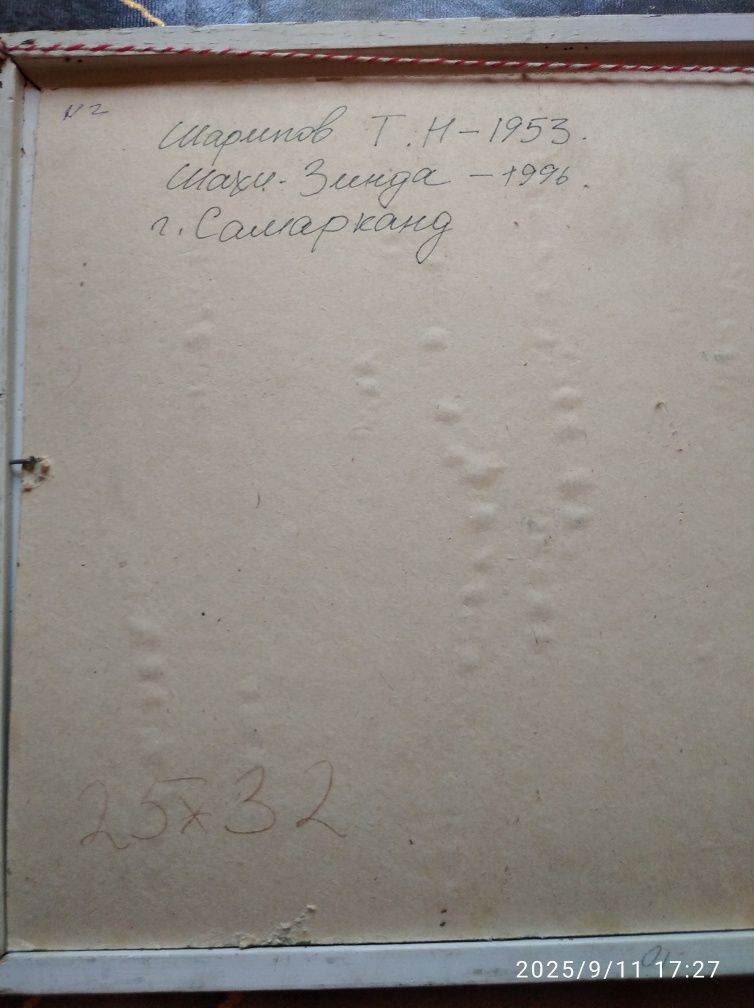 N 2
Шарипов Т.Н – 1953.
Шахи-Зинда – 1996.
г. Самарканд
25x32
2025/9/11 17:27